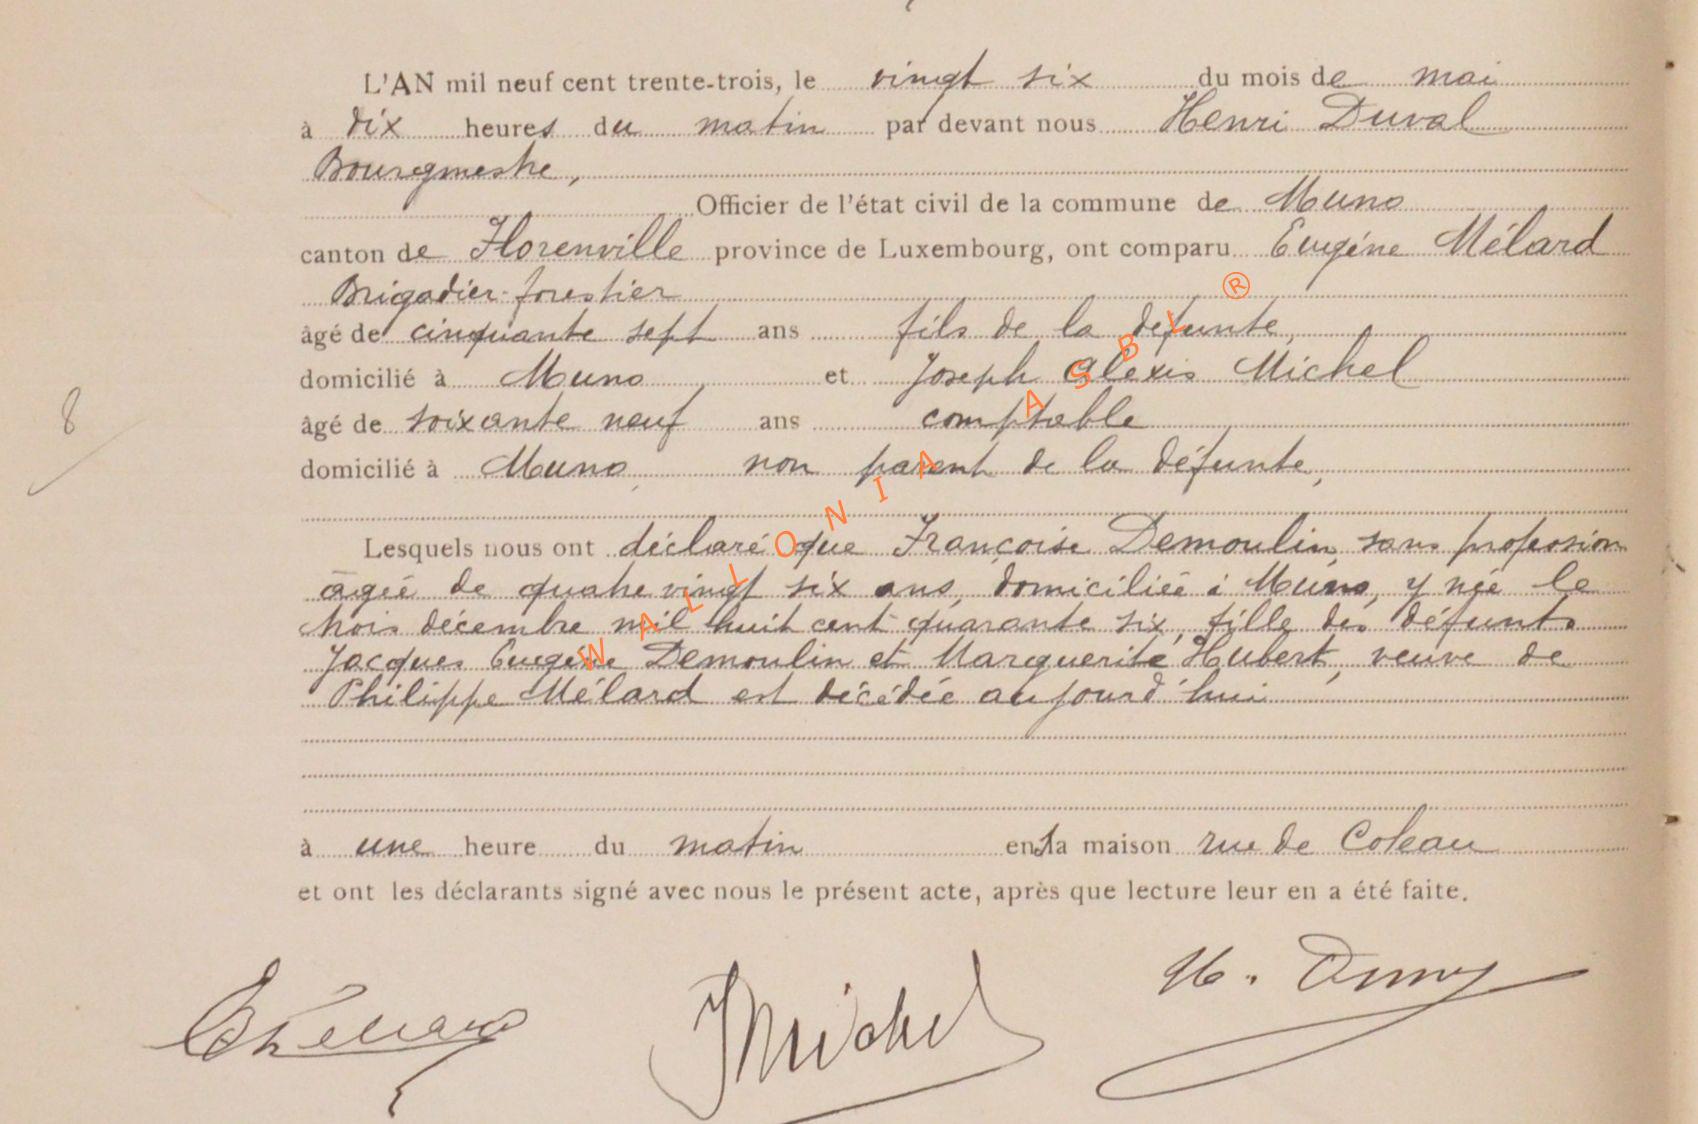 L'AN mil neuf cent trente-trois, le vingt six du mois de mai
à dix heures du matin par devant nous Henri Duval
Bourgmestre,
Officier de l'état civil de la commune de Muno
canton de Florenville province de Luxembourg, ont comparu Eugéne Mélard
Brigadier-forestier
âgé de cinquante sept ans fils de la défunte,
domicilié à Muno, et Joseph Alexis Michel
âgé de soixante neuf ans comptable
domicilié à Muno, non parent de la défunte,
Lesquels nous ont déclaré que Françoise Demoulin, sans profession
âgée de quatre vingt six ans, domiciliée à Muno, y née le
trois décembre mil huit cent quarante six, fille des défunts
Jacques Eugéne Demoulin et Marguerite Hubert, veuve de
Philippe Mélard est décédée aujourd'hui
à une heure du matin en la maison rue de Coteau
et ont les déclarants signé avec nous le présent acte, après que lecture leur en a été faite.
JMichel
WALLONIA ASBL ®
8